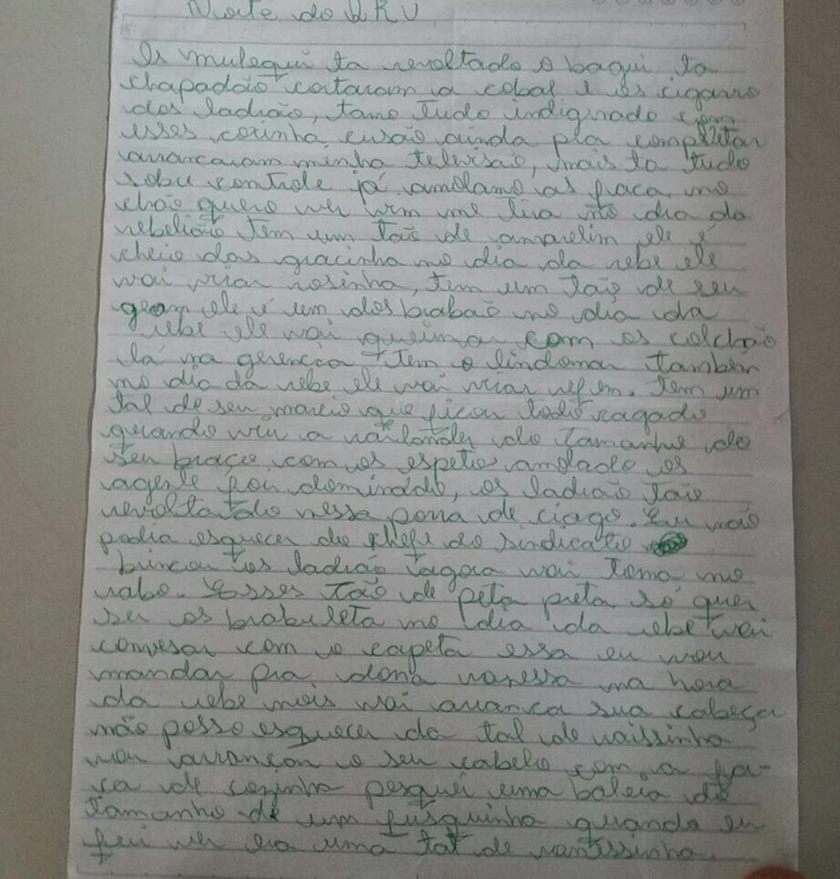 Norte do DRU
Os mulequi ta revoltado o baqui ta
chapadão cortaram a cobal e os cigarro
dos ladrão, tamo tudo indignado com
esses coxinha cusão ainda pra completar
arrancaram minha televisão, mais ta tudo
sobre controle já amolamo as faca no
chão quero ver vim me tira no dia da
rebelião tem um tao de amarelim ele é
cheio das gracinha no dia da rebe ele
vai virar rosinha, tem um tao de seu
ele é um dos brabão no dia da
rebe ele vai queimar com os colchão
lá na gerencea tem o lindomar também
no dia da rebe ele vai virar refem. Tem um
tal de seu marcio que ficou todo cagado
quando viu a do tamanho do
seu braço com os espeto amolado os
agente foi dominado, os ladrão tão
revoltado nessa porra de ciago. Eu não
podia esquecer do chefe do sindicato
brincou os ladrão tagora vai toma no
rabo. Esses tao de peta preta só quer
ser os brabuleta no dia da rebe vai
conversar com o capeta essa eu vou
mandar pra dona vanessa na hora
da rebe nois vai arranca sua cabeça
não posso esquecer da tal de raissinha
vou arrancar o seu cabelo com a fa-
ca de cozinha pesquei uma baleia do
tamanho de um fusquinha quando eu
fui ver era uma tal de